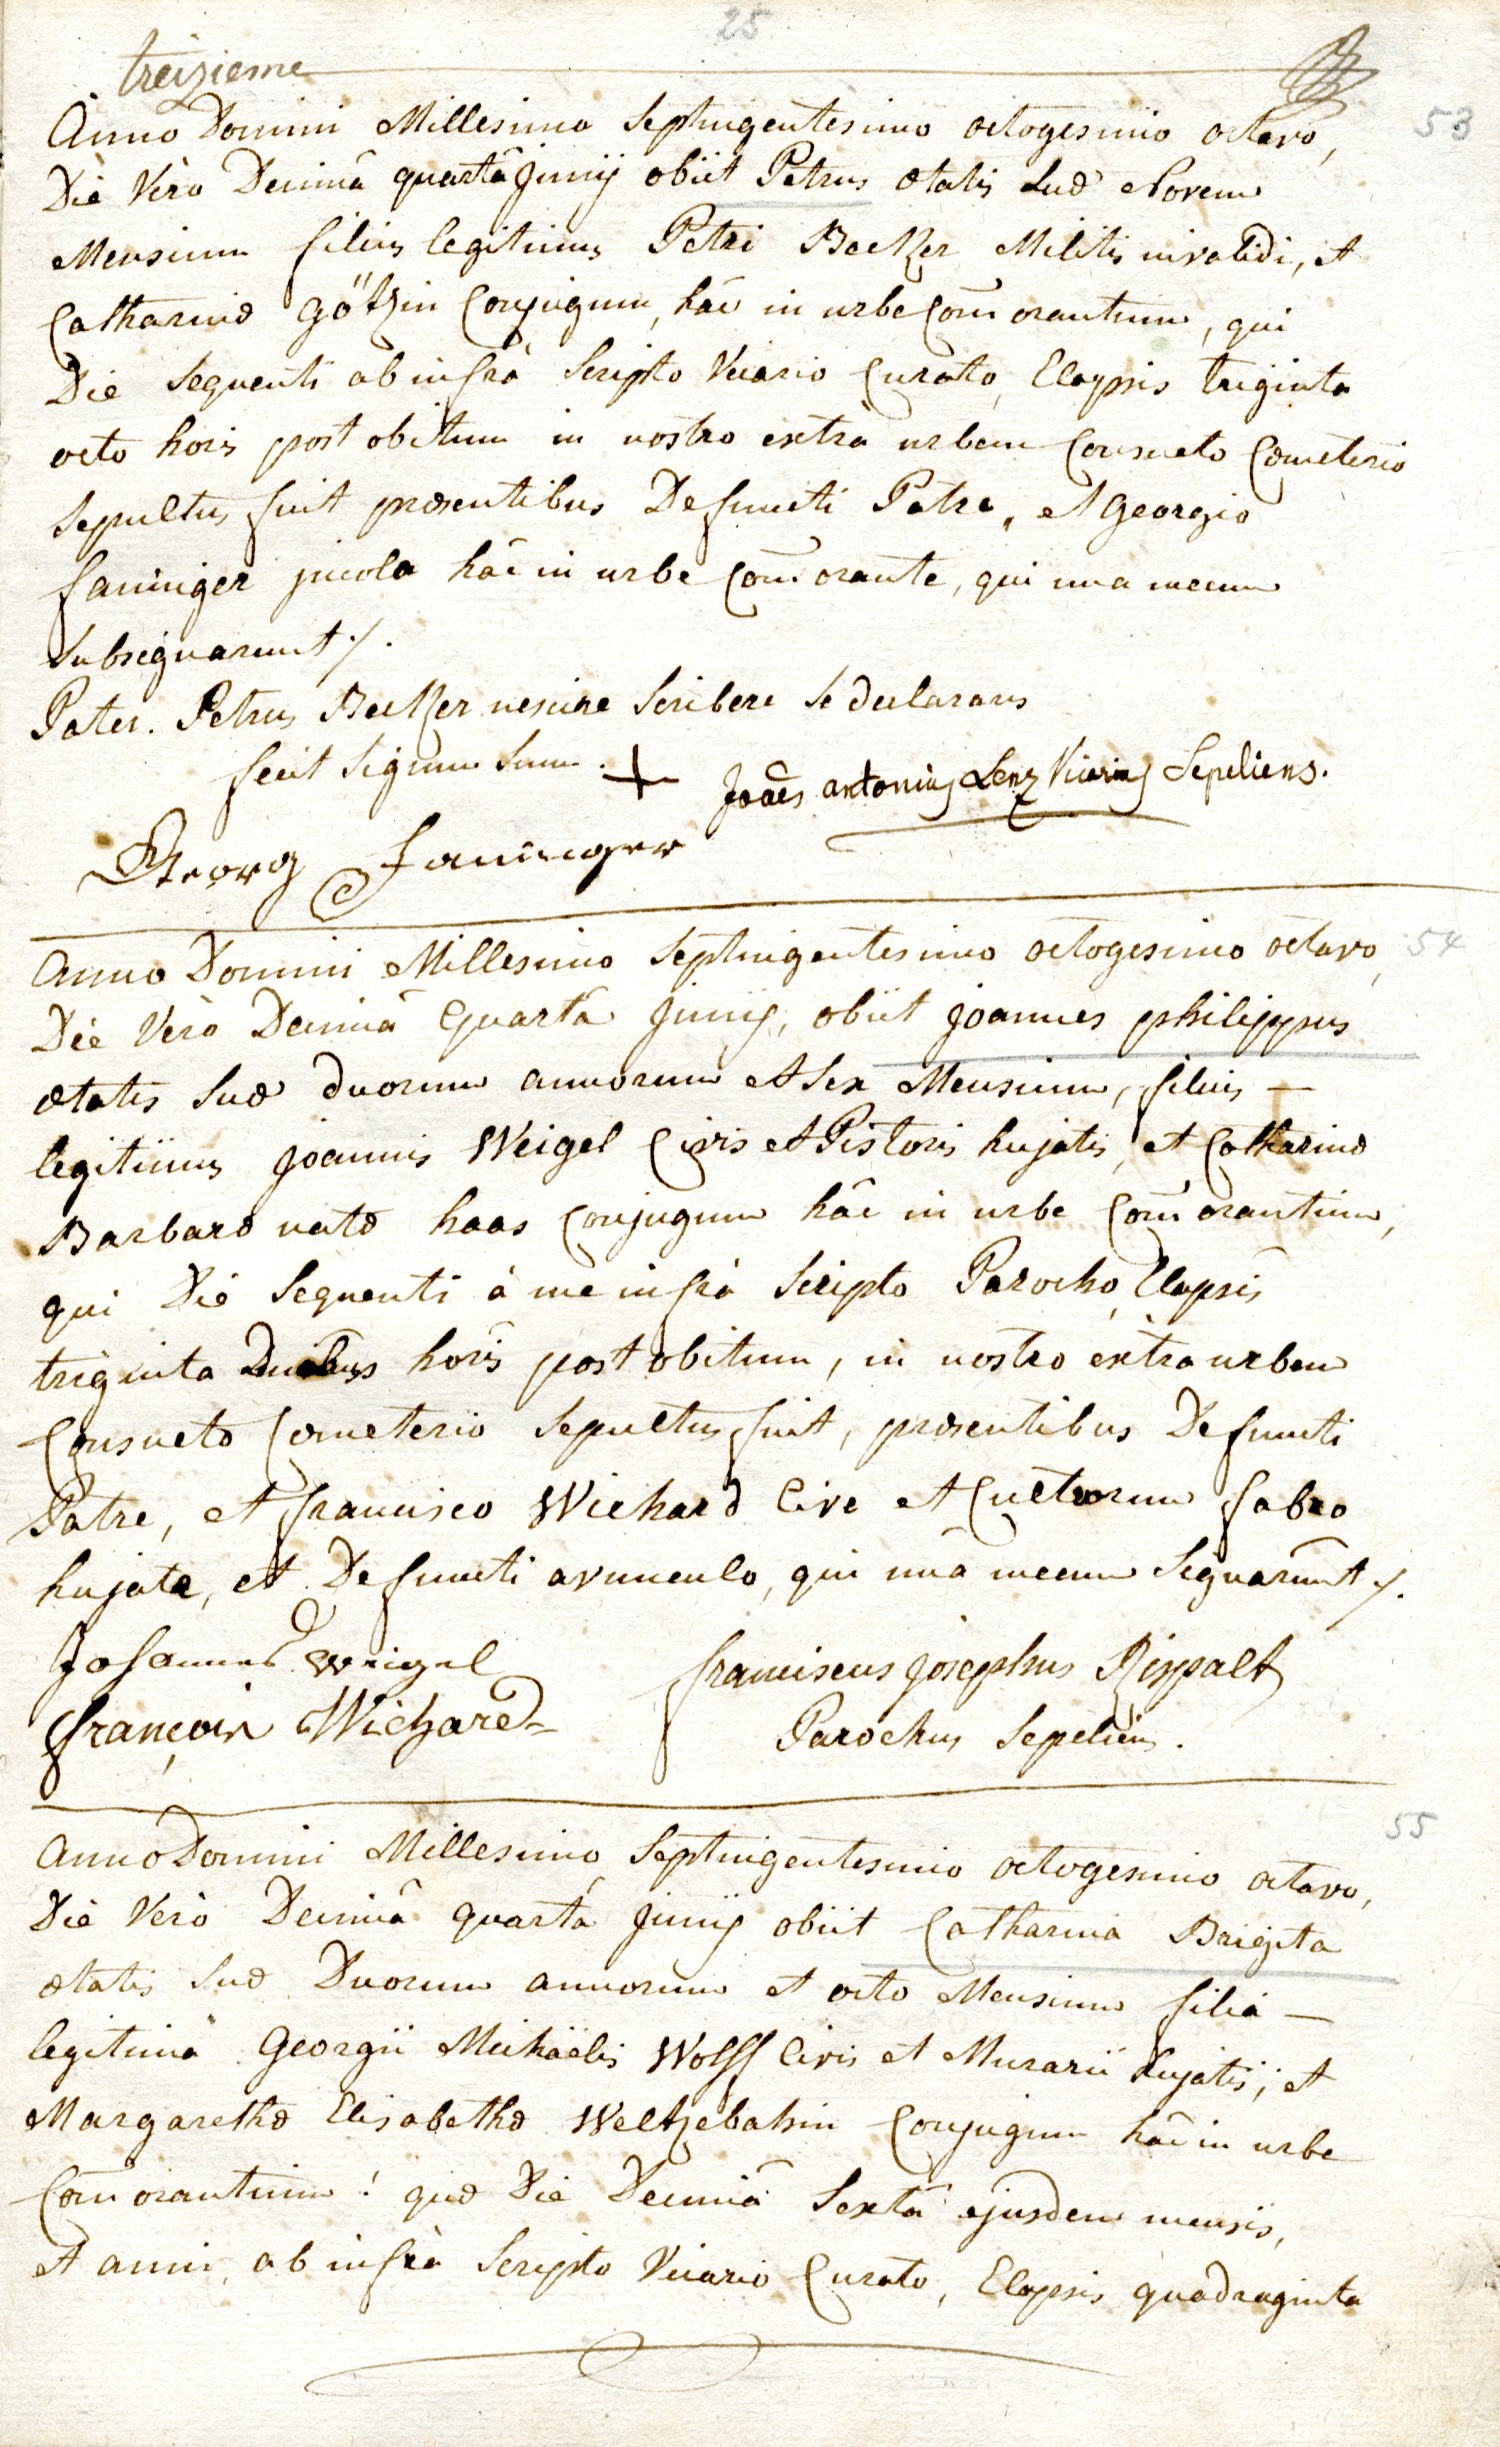 25
treizieme
Anno Domini Millesimo Septingentesimo octogesimo octavo,
53
Die Vero Decimâ quartâ Junij obiit Petrus ætatis suæ Novem
Mensium filius legitimus Petri Becker Militis invalidi, et
Catharinæ Götzin Conjugum, hâc in urbe Com̄orantium, qui
Die Sequenti ab infrà Scripto Vicario Curato, Elapsis triginta
octo horis post obitum in nostro extra urbem Consueto Cœmeterio
Sepultus fuit præsentibus Defuncti Patre, et Georgio
faninger incola hâc in urbe Com̄orante, qui una mecum
Subsignarunt ./.
Pater. Petrus Becker nescire Scribere se declarans
fecit Signum Suum. +
Joães antonius Lenz Vicarius Sepeliens.
Georg Faninger
Anno Domini Millesimo Septingentesimo octogesimo octavo,
54
Die Verò Decimâ Quartâ Junij, obiit Joannes philippus
ætatis suæ duorum annorum et sex Mensium, filius —
legitimus Joannis Weigel Civis et Pistoris hujatis, et Catharinæ
Barbaræ natæ haas Conjugum hâc in urbe Com̄orantium,
qui Die Sequenti à me infrà Scripto Parocho, Elapsis
triginta Duabus horis post obitum, in nostro extra urbem
Consueto Cœmeterio Sepultus fuit, præsentibus Defuncti
Patre, et francisco Wichard Cive et Cultrorum fabro
hujate, et Defuncti avunculo, qui unâ mecum Signarūnt ./.
Johannes Weigel
franciscus Josephus Rispalt
françois Wichard
Parochus Sepeliens.
55
Anno Domini Millesimo Septingentesimo octogesimo octavo,
Die Verò Decimâ quartâ Junij obiit Catharina Brigita
ætatis suæ Duorum annorum et octo Mensium filia —
legitima Georgii Michaëlis Wolff Civis et Murarii hujatis, et
Margarethæ Elisabethæ Weltzebahin Conjugum hâc in urbe
Com̄orantium! quæ Die Decimâ Sextâ ejusdem mensis,
et anni, ab infrà Scripto Vicario Curato, Elapsis quadraginta